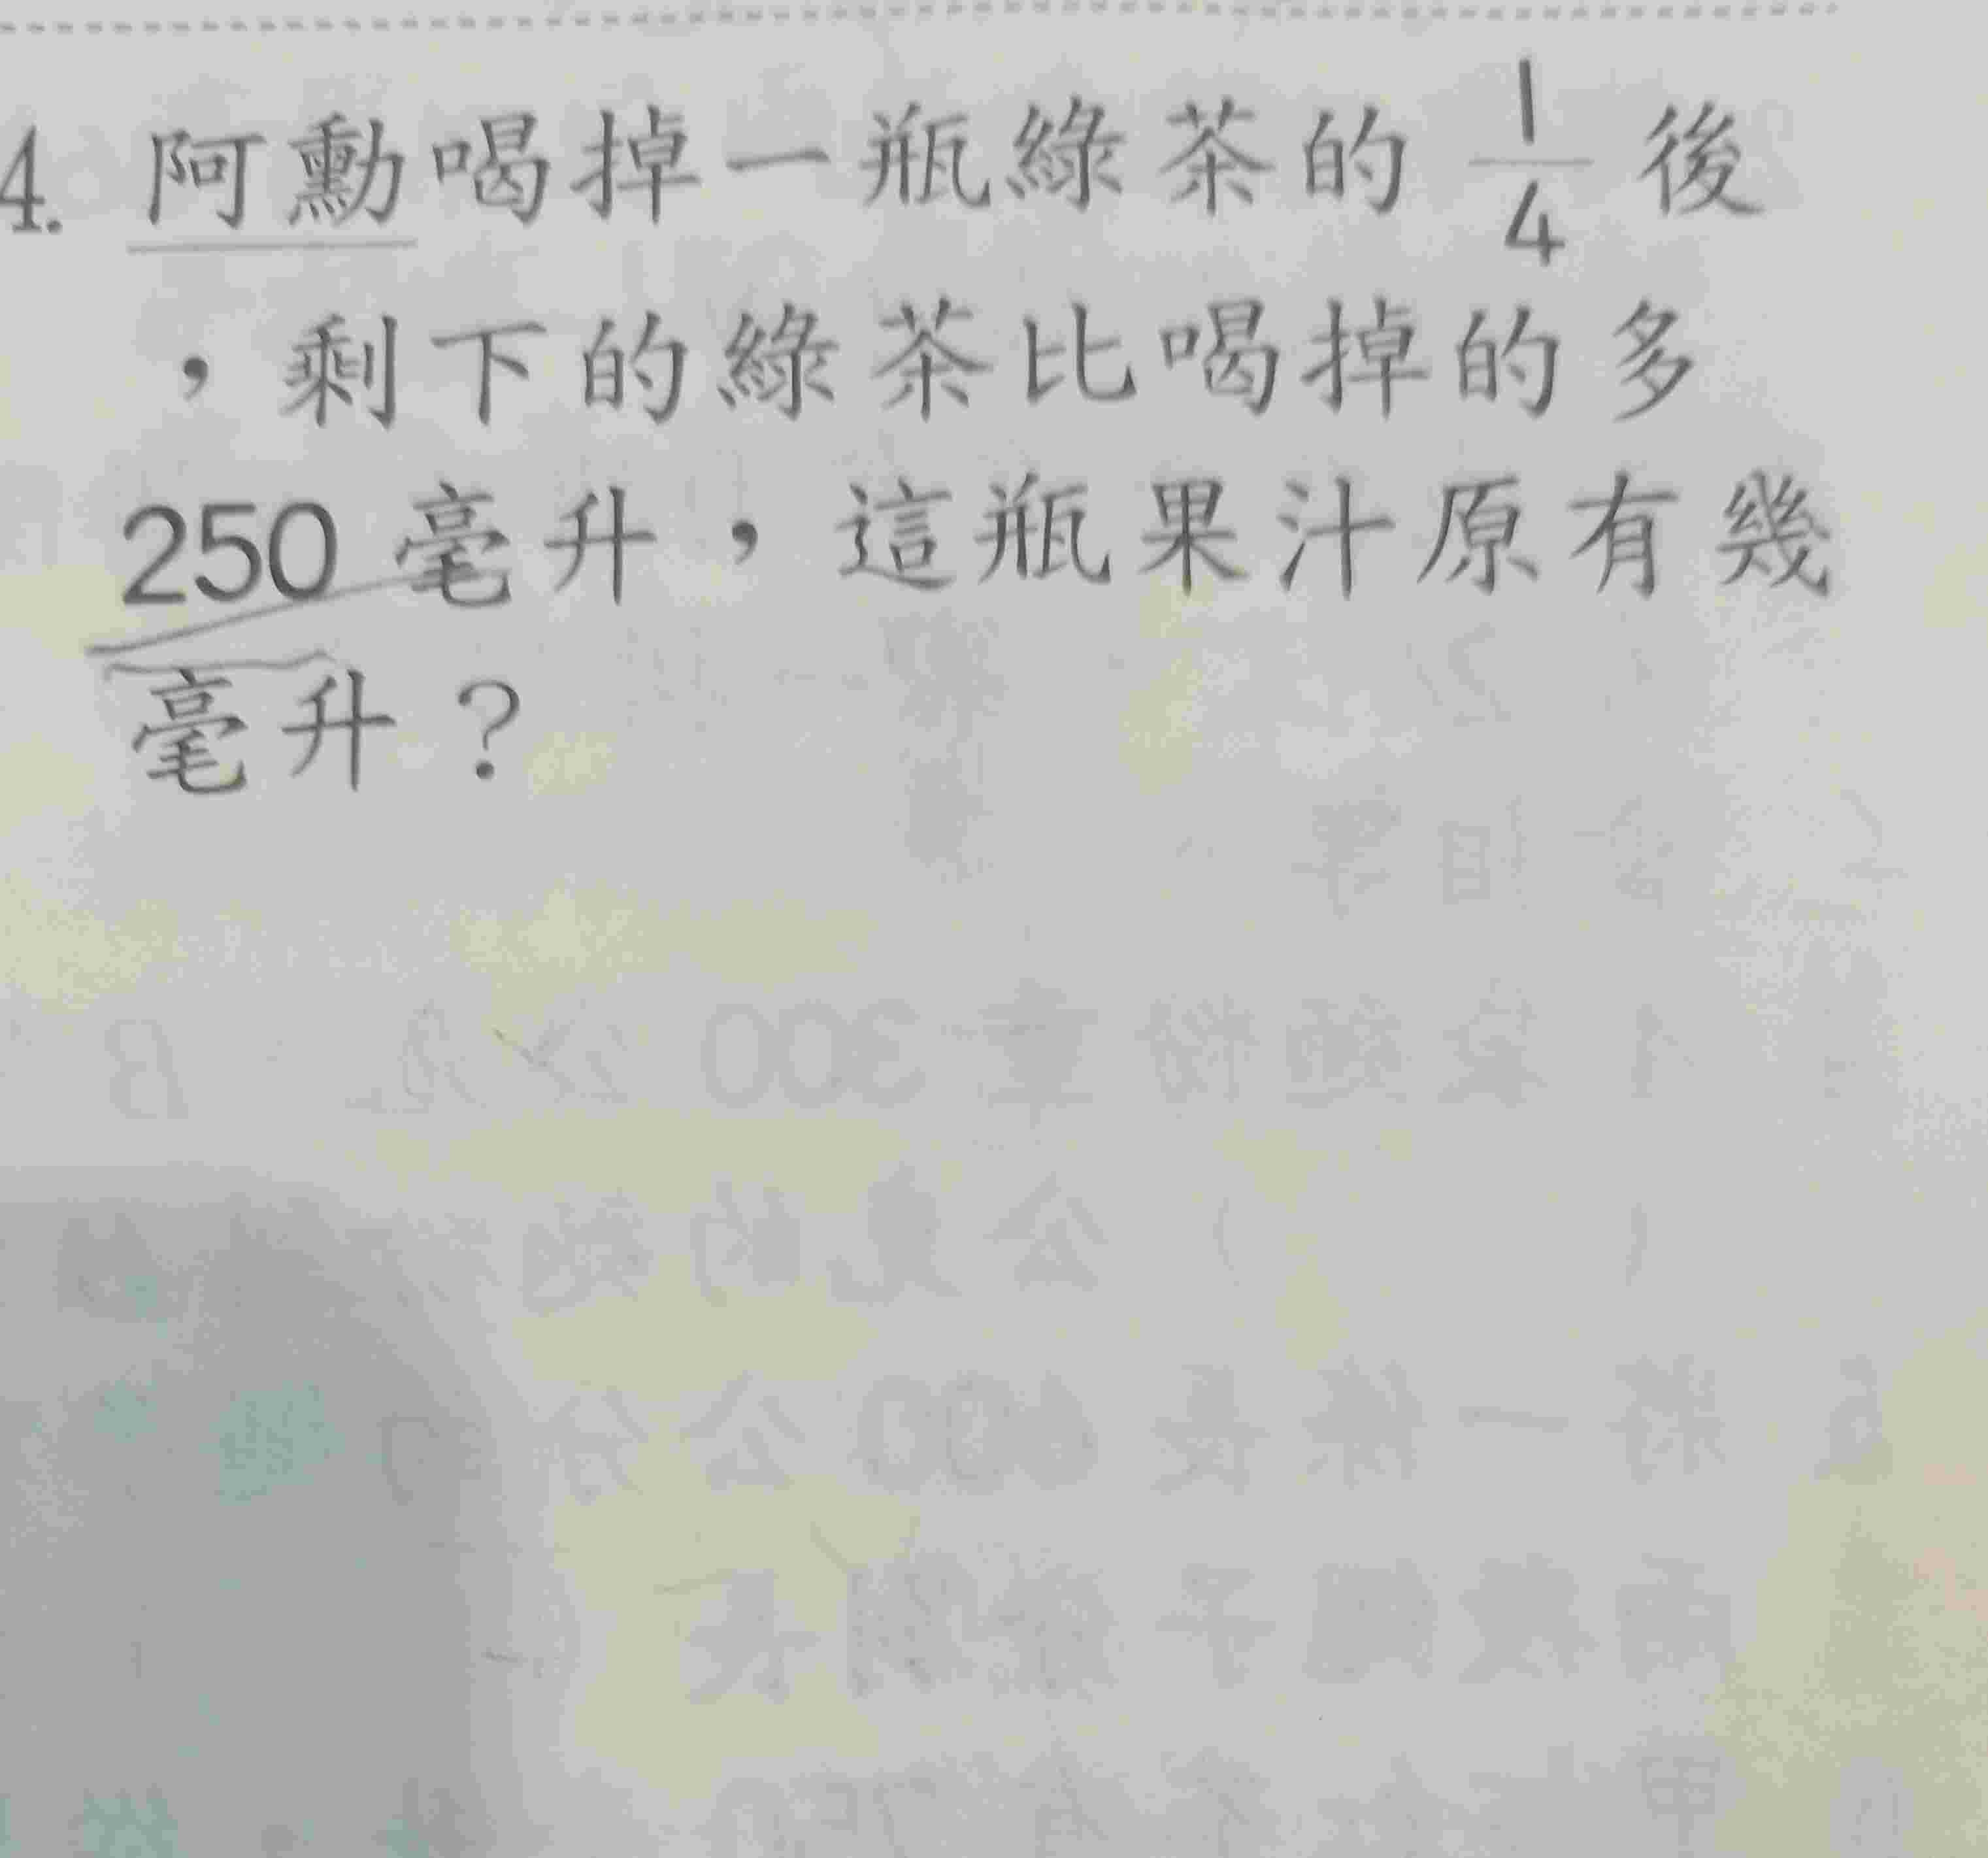 4. 阿勳喝掉一瓶綠茶的 1/4 後
，剩下的綠茶比喝掉的多
250 毫升，這瓶果汁原有幾
毫升？